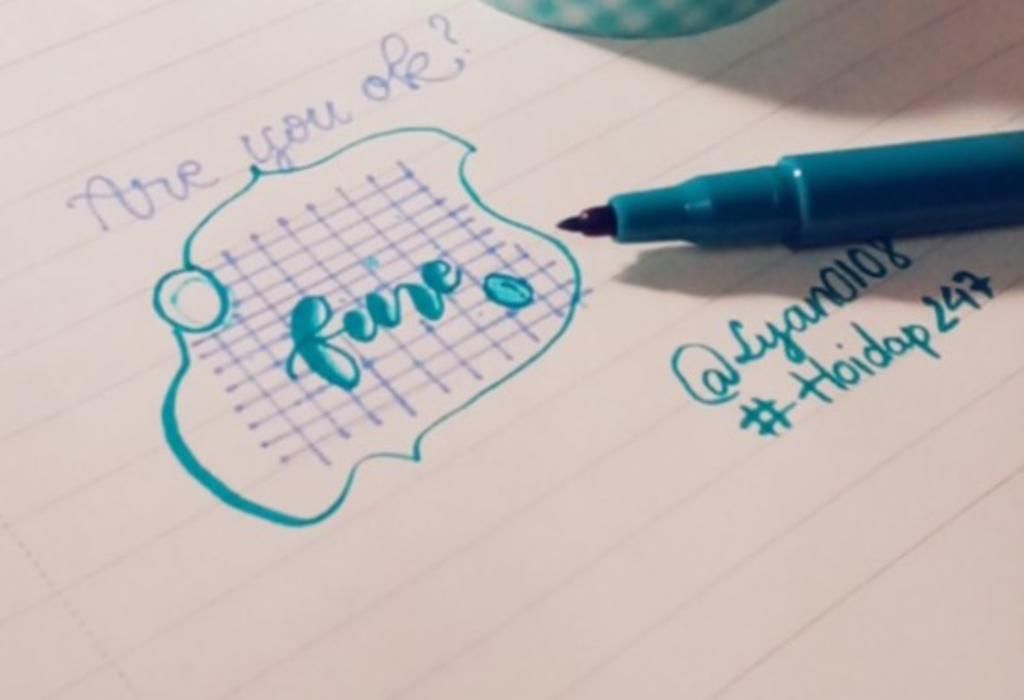 Are you ok?
fine
@Lyan0108
#Hoidap247